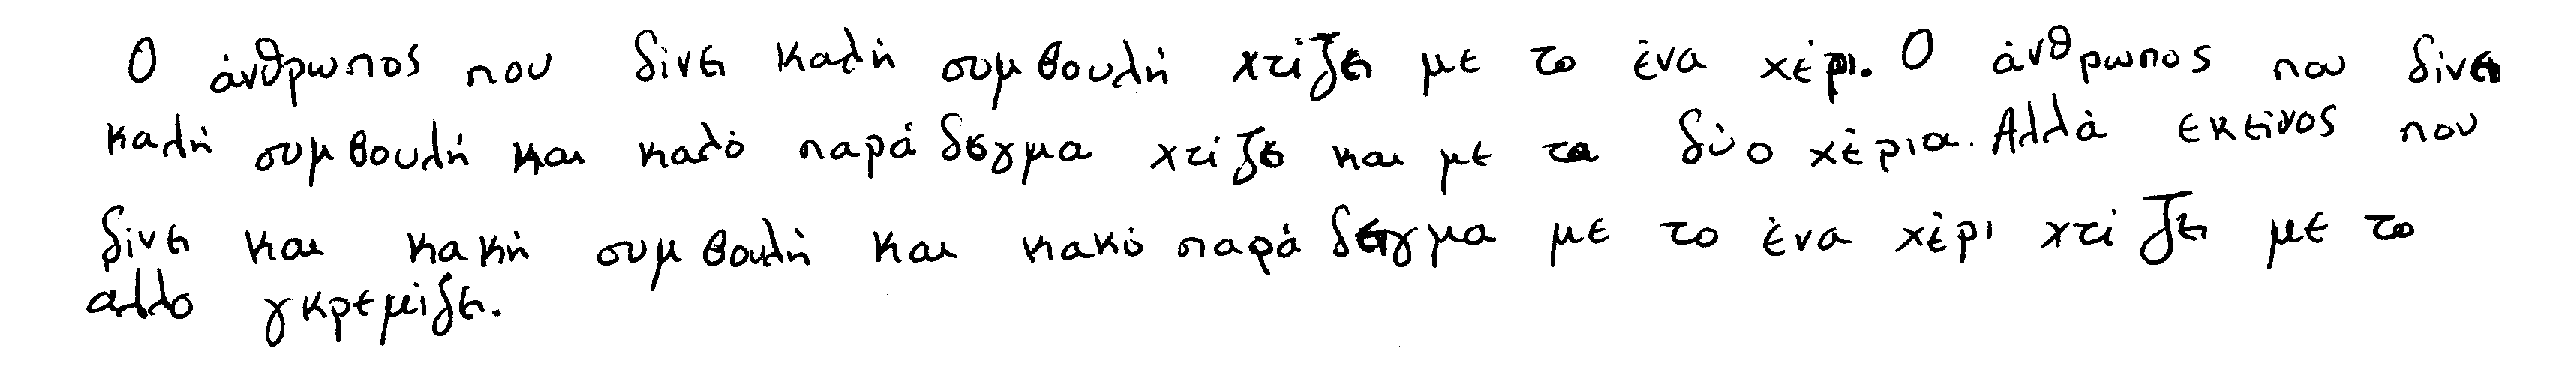 Ο άνθρωπος που δίνει καλή συμβουλή χτίζει με το ένα χέρι. Ο άνθρωπος που δίνει
καλή συμβουλή και καλό παράδειγμα χτίζει και με τα δύο χέρια. Αλλά εκείνος που
δίνει και κακή συμβουλή και κακό παράδειγμα με το ένα χέρι χτίζει με το
αλλο γκρεμίζει.